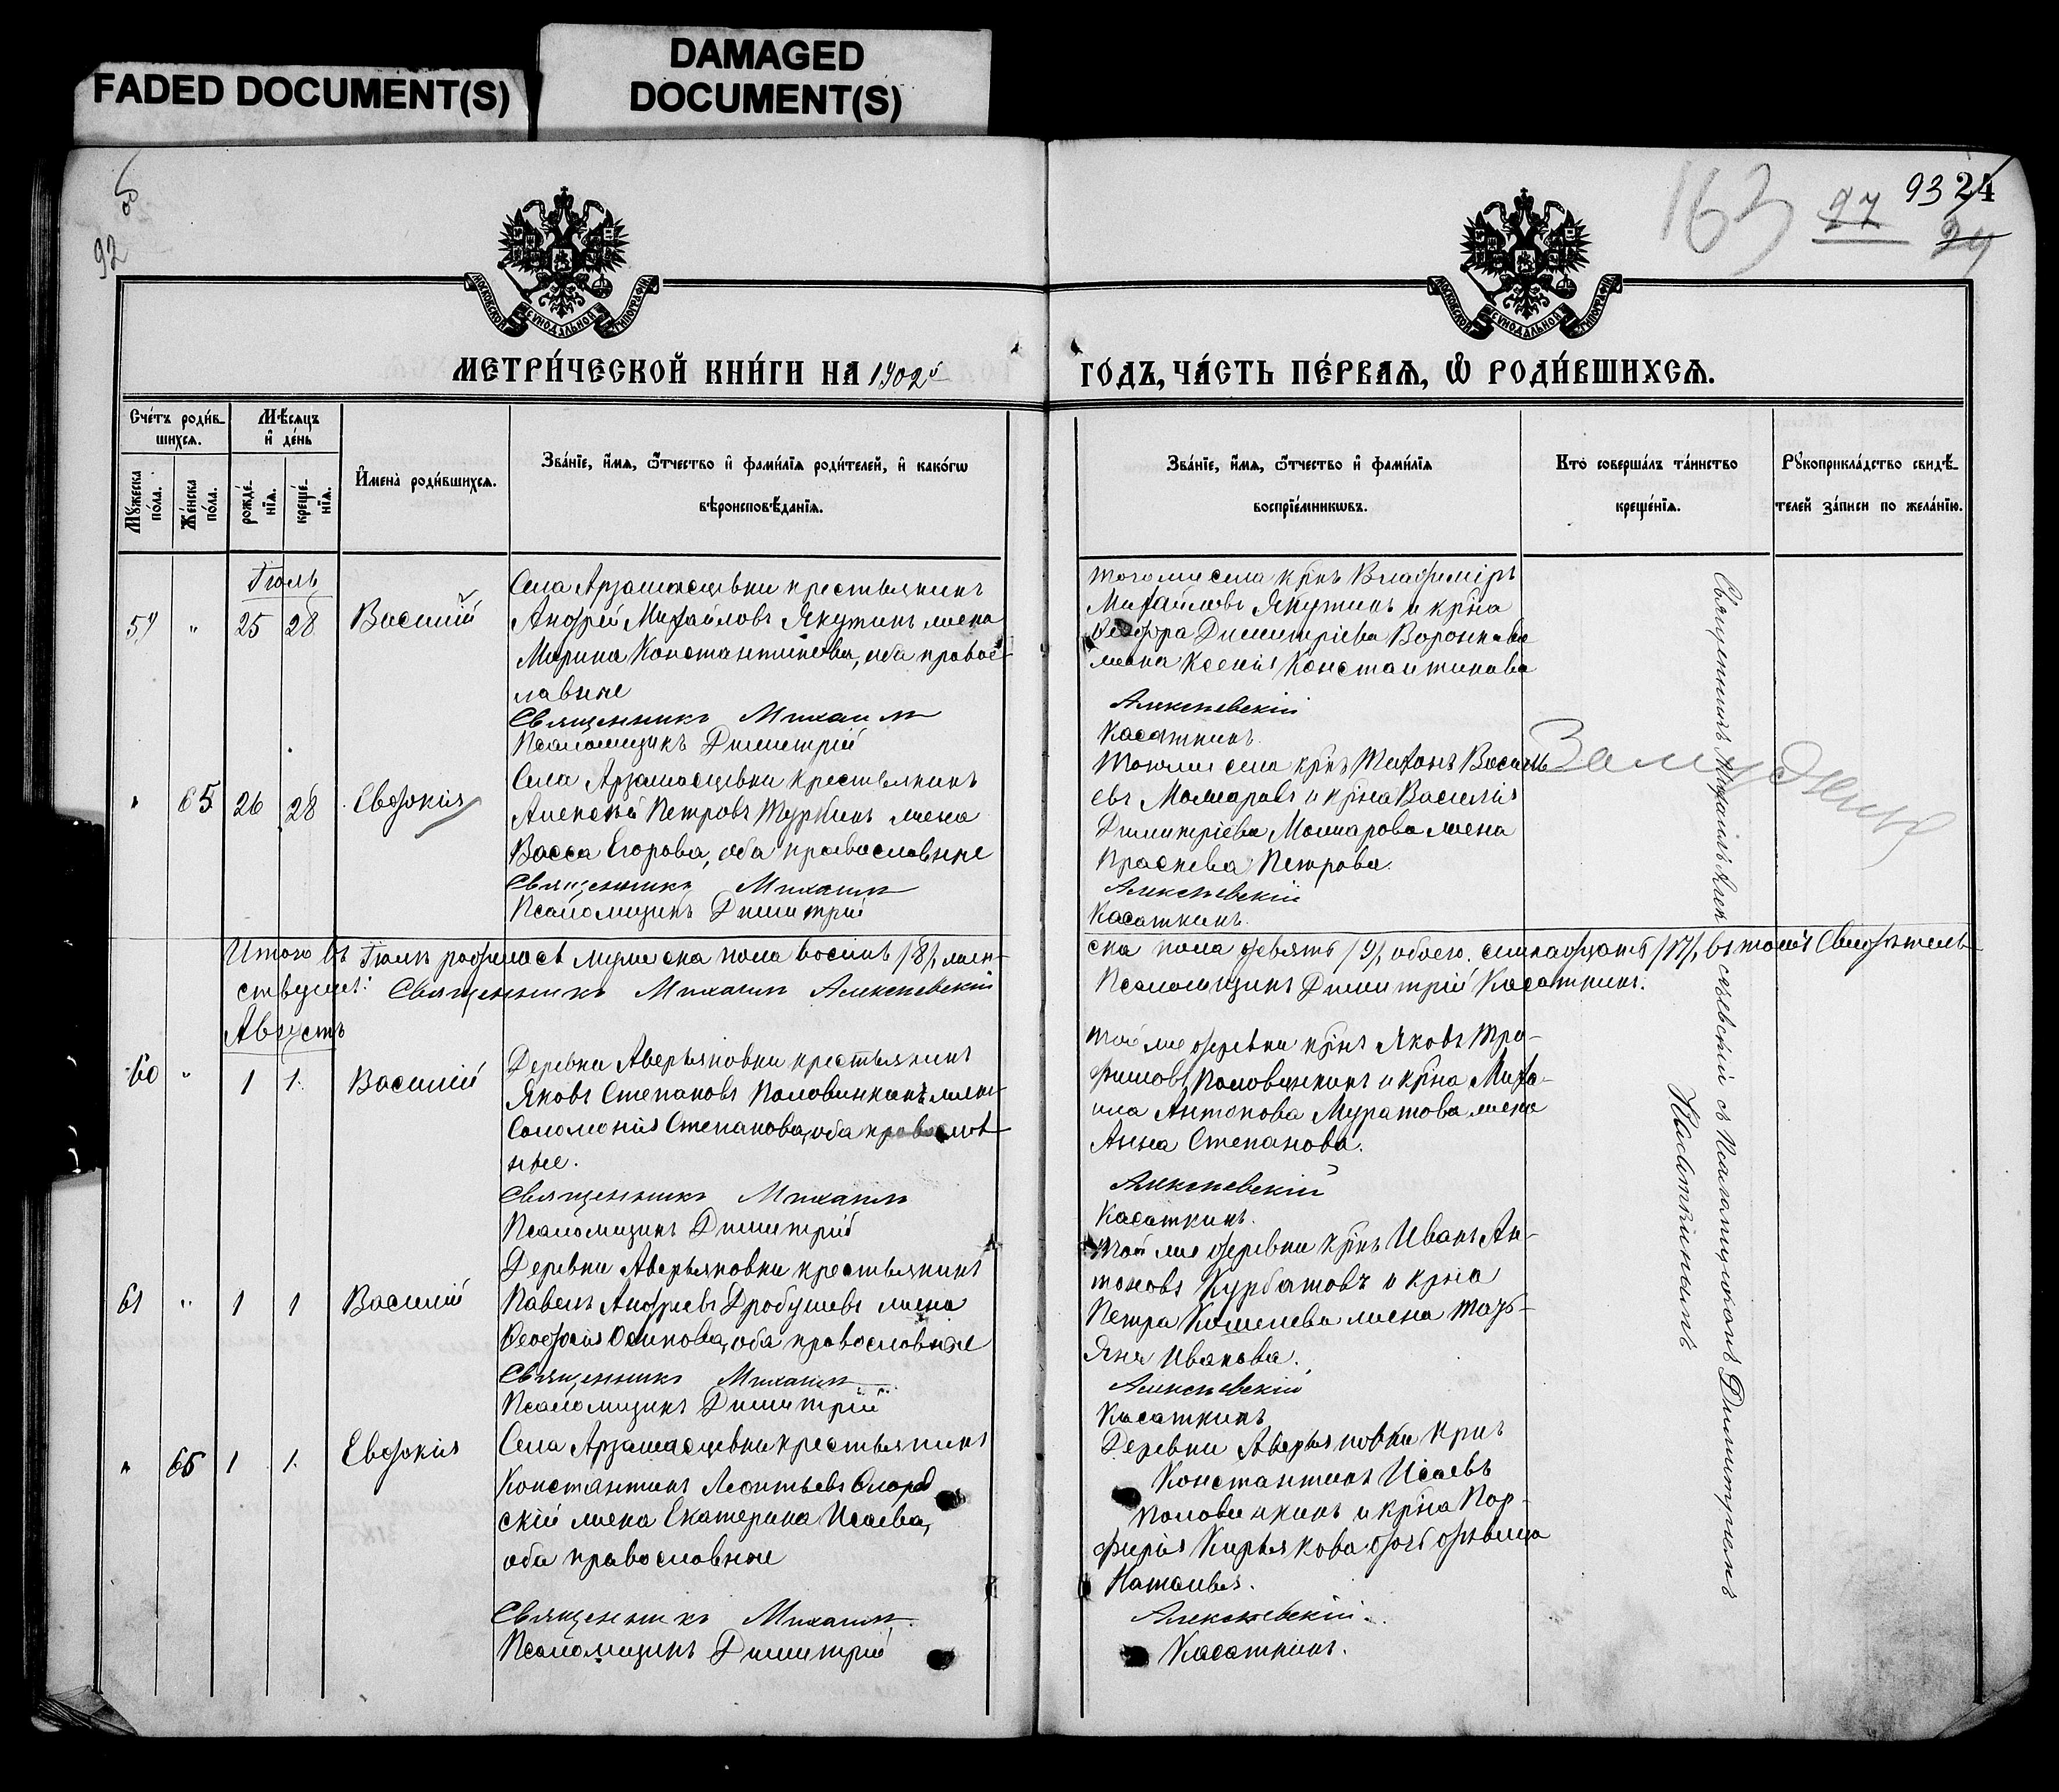 FADED DOCUMENT(S)
DAMAGED
DOCUMENT(S)
92
163
27
93 24
МОСКОВСКОЙ СѴНОДАЛЬНОЙ ТИПОГРАФІИ
МОСКОВСКОЙ СѴНОДАЛЬНОЙ ТИПОГРАФІИ
МЕТРИ́ЧЕСКОЙ КНИ́ГИ НА 1902й
ГО́ДЪ, ЧА́СТЬ ПЕ́РВАѦ, Ѡ҆ РОДИ́ВШИХСѦ.
Сче́тъ роди́в-
шихсѧ.
Мѣ́сѧцъ
и҆ де́нь
Мꙋ́жеска
по́ла.
Же́нска
по́ла.
рожде́-
нїѧ.
креще́-
нїѧ.
И҆мена̀ роди́вшихсѧ.
Зва́нїе, и҆́мѧ, ѻ҆́тчество и҆ фами́лїѧ роди́телей, и҆ како́гѡ
вѣроисповѣ́данїѧ.
Зва́нїе, и҆́мѧ, ѻ҆́тчество и҆ фами́лїѧ
воспрїе́мникѡвъ.
Кто̀ соверша́лъ та́инство
креще́нїѧ.
Рꙋкоприкла́дство свидѣ́-
телей за́писи по жела́нїю.
Іюль
59 " 25 28 Василій
Села Арзамасцевки крестьянинъ
Андрей Михайловъ Якутинъ жена
Марина Константинова, оба правос-
лавные
Священникъ Михаилъ
Псаломщикъ Димитрій
тогоже села крнъ Владиміръ
Михайловъ Якутинъ и крна
Ѳеодора Димитріева Воронкова
жена Ксенія Константинова
Алексѣевскій
Касаткинъ.
" 65 26 28 Евдокія
Села Арзамасцевки крестьянинъ
Алексѣй Петровъ Туркинъ жена
Васса Егорова, оба православные
Священникъ Михаилъ
Псаломщикъ Димитрій
Тогоже села крнъ Тихонъ Василь
евъ Мошаровъ и крна Василія
Димитріева Мошарова жена
Праскева Петрова.
Алексѣевскій
Касаткинъ.
Итого въ Іюлѣ родилось мужеска пола восемь /8/, жен-
ска пола девять /9/, обоего семнадцать /17/, въ томъ свидѣтель-
ствуемъ: Священникъ Михаилъ Алексѣевскій
Псаломщикъ Димитрій Касаткинъ.
Августъ
60 " 1 1. Василій
Деревни Аверьяновки крестьянинъ
Яковъ Степановъ Половинкинъ жена
Соломонія Степанова, оба православ-
ные.
Священникъ Михаилъ
Псаломщикъ Димитрій
той же деревни крнъ Яковъ Тро-
фимовъ Половинкинъ и крна Миха-
ила Антонова Муратова жена
Анна Степанова.
Алексѣевскій
Касаткинъ.
61 " 1 1 Василій
Деревни Аверьяновки крестьянинъ
Павелъ Андреевъ Дробушевъ жена
Ѳеодосія Осипова, оба православные
Священникъ Михаилъ
Псаломщикъ Димитрій
Той же деревни крнъ Иванъ Ан-
тоновъ Курбатовъ и крна
Петра Кошелева жена Тать-
яна Иванова.
Алексѣевскій
Касаткинъ
" 66 1 1. Евдокія
Села Арзамасцевки крестьянинъ
Константинъ Леонтьевъ
скій жена Екатерина Исаева,
оба православные
Священникъ Михаилъ
Псаломщикъ Димитрій
Деревни Аверьяновки крнъ
Константинъ Исаевъ
Половинкинъ и крна Пор-
фирія Кирьякова дочь дѣвица
Наталья.
Алексѣевскій.
Касаткинъ.
Священникъ Михаилъ Алексѣевскій съ Псаломщикомъ Димитріемъ
Касаткинымъ